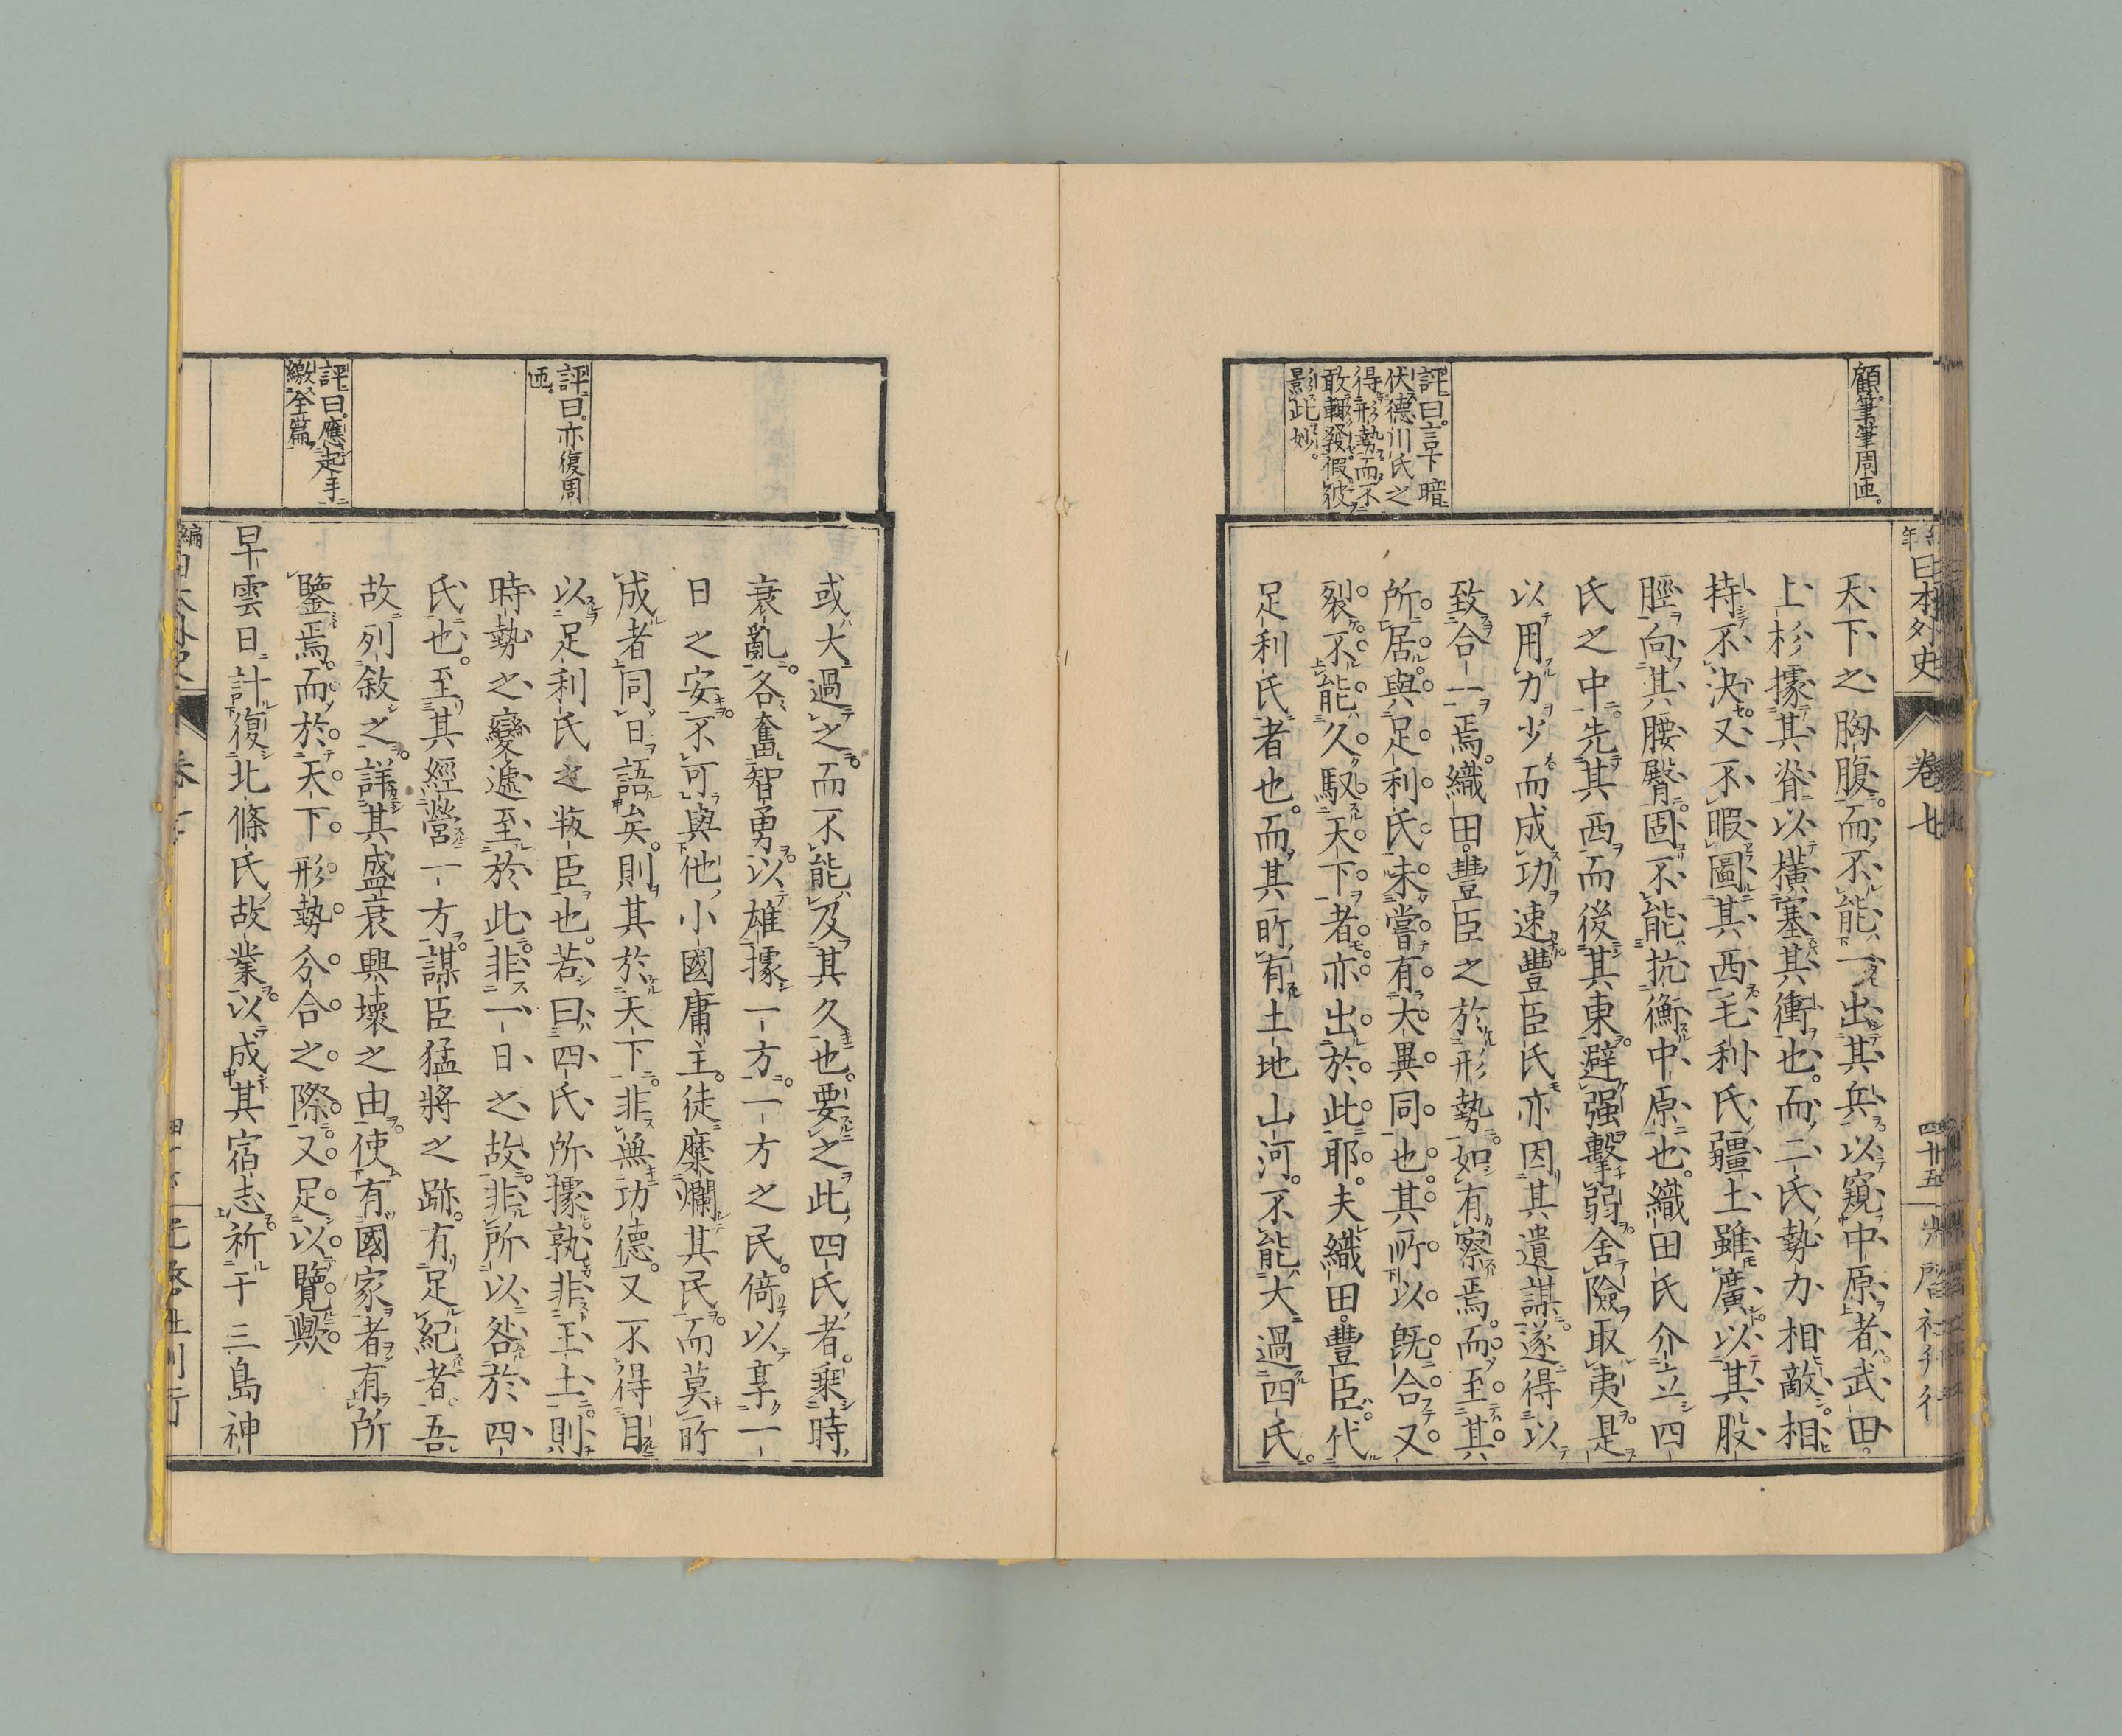 日本外史
卷七
四十五
光啓社刊行
顧筆筆周匝。
評曰。言下暗
伏德川氏之
得形勢而不
敢輒發假彼
影此妙。
天下之胸腹。而不能一出其兵。以窺中原者。武田
上杉據其脊。以橫塞其衝也。而二氏勢力相敵。相
持不決。又不暇圖其西。毛利氏疆土雖廣。以其股
脛向其腰臀。固不能抗衡中原也。織田氏介立四
氏之中。先其西而後其東。避强擊弱。舍險取夷。是
以用力少而成功速。豐臣氏亦因其遺謀。遂得以
致合一焉。織田。豐臣之於形勢。如有察焉。而至其
所居。與足利氏未嘗有大異同也。其所以既合又
裂。不能久馭天下者。亦出於此耶。夫織田。豐臣。代
足利氏者也。而其所有土地山河。不能大過四氏。
評曰。亦復周
匝。
評曰。應起手
繳全篇。
或大過之。而不能及其久也。要之此四氏者。乘時
衰亂。各奮智勇。以雄據一方。一方之民。倚以享一
日之安。不可與他小國庸主。徒糜爛其民。而莫所
成者同日語矣。則其於天下。非無功德。又不得目
以足利氏之叛臣也。若曰四氏所據孰非王土。則
時勢之變遞至於此。非一日之故。非所以咎於四
氏也。至其經營一方。謀臣猛將之跡。有足紀者。吾
故列敘之。詳其盛衰興壞之由。使有國家者有所
鑒焉。而於天下形勢分合之際。又足以覽歟
早雲日計復北條氏故業。以成其宿志。祈于三島神
光啓社刊行